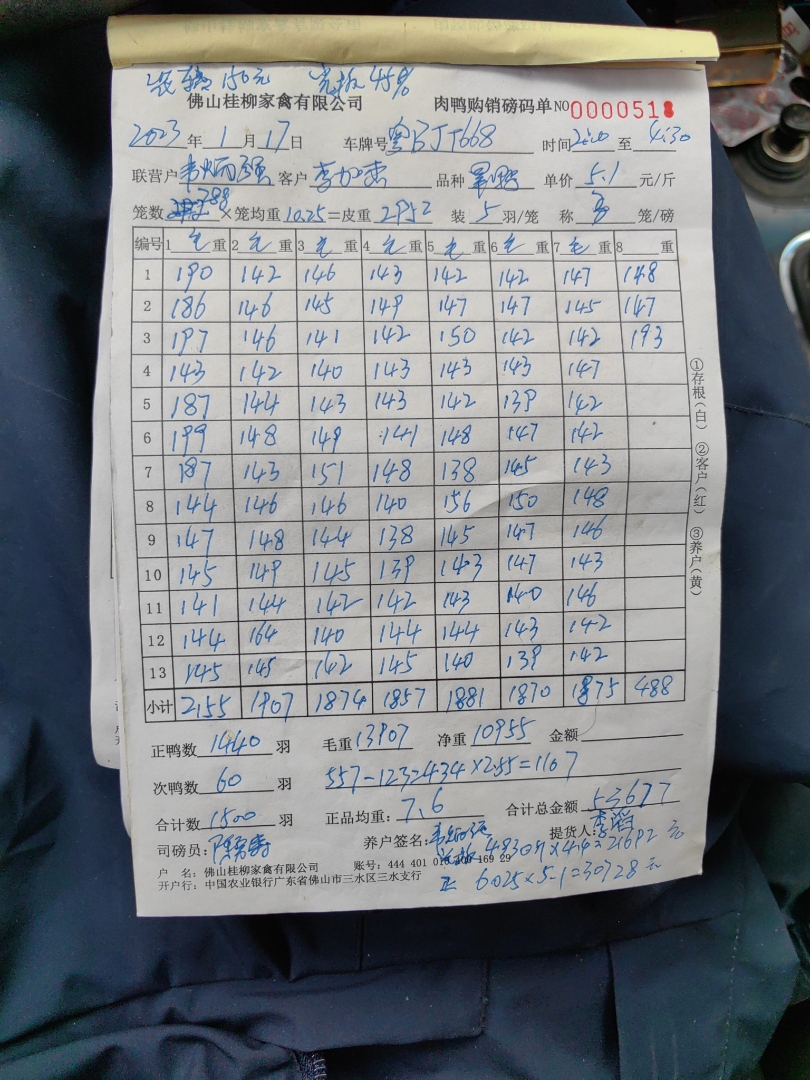 装车 150元 光板 45%
佛山桂柳家禽有限公司 肉鸭购销磅码单 NO 0000518
2023年1月17日 车牌号 粤BJT668 时间 2:00 至 4:30
联营户 客户 品种 单价 5.1 元/斤
笼数 288 ×笼均重 10.25 =皮重 2952 装 5 羽/笼 称 笼/磅
编号 1 毛 重 2 毛 重 3 毛 重 4 毛 重 5 毛 重 6 毛 重 7 毛 重 8 重
1 190 142 146 143 142 142 147 148
2 186 146 145 149 147 147 145 147
3 197 146 141 142 150 142 142 193
4 143 142 140 143 143 143 147
5 187 144 143 143 142 139 142
6 199 148 149 141 148 147 142
7 187 143 151 148 138 145 143
8 144 146 146 140 156 150 148
9 147 148 144 138 145 147 146
10 145 149 145 139 143 147 143
11 141 144 142 142 143 140 146
12 144 164 140 144 144 143 142
13 145 145 142 145 140 139 142
小计 2155 1907 1874 1857 1881 1870 1875 488
①存根(白) ②客户(红) ③养户(黄)
正鸭数 1440 羽 毛重 13907 净重 10955 金额
次鸭数 60 羽 557-123=434×2.55=1107
合计数 1500 羽 正品均重: 7.6 合计总金额 53677
司磅员: 养户签名: 提货人:
光板 4930斤×4.4=21692元
户 名: 佛山桂柳家禽有限公司 账号: 444 401 010 169 29
开户行: 中国农业银行广东省佛山市三水区三水支行
正 6025×5.1=30728元